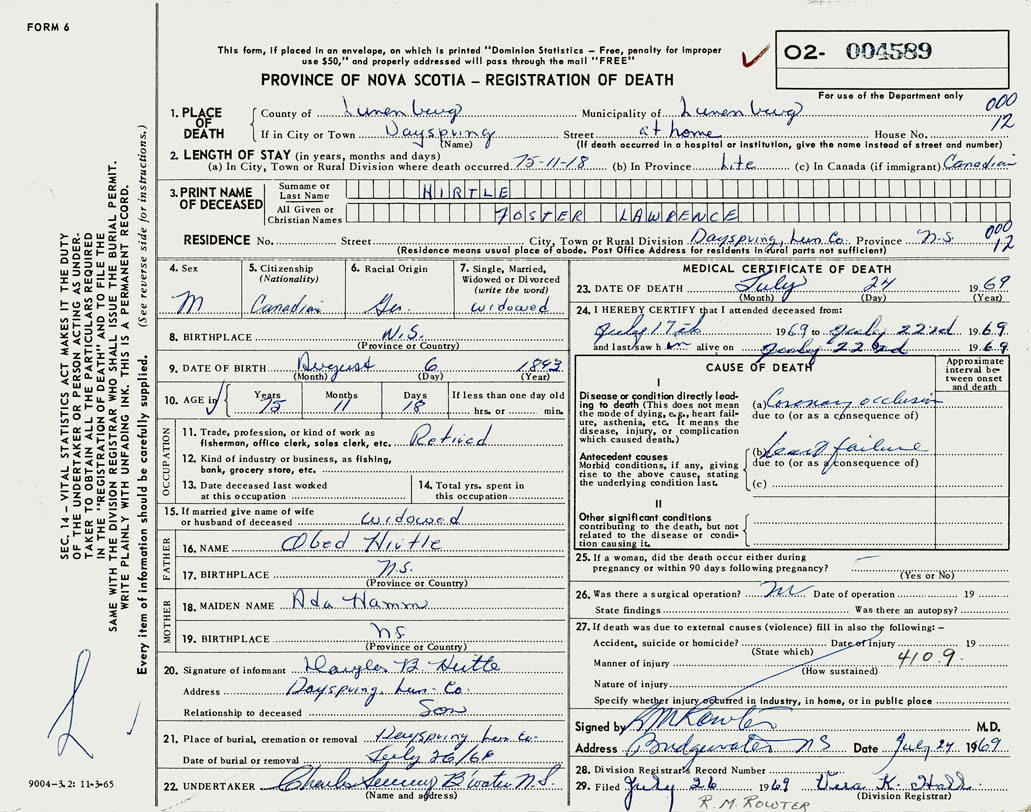 FORM 6
This form, if placed in an envelope, on which is printed "Dominion Statistics – Free, penalty for improper
use $50," and properly addressed will pass through the mail "FREE"
PROVINCE OF NOVA SCOTIA – REGISTRATION OF DEATH
O2- 004589
For use of the Department only
000
12
1. PLACE OF DEATH
County of Lunenburg Municipality of Lunenburg
If in City or Town Dayspring Street at home House No.
(Name) (If death occurred in a hospital or institution, give the name instead of street and number)
2. LENGTH OF STAY (in years, months and days)
(a) In City, Town or Rural Division where death occurred 75-11-18 (b) In Province Life (c) In Canada (if immigrant) Canadian
3. PRINT NAME OF DECEASED
Surname or Last Name HIRTLE
All Given or Christian Names FOSTER LAWRENCE
RESIDENCE No. Street City, Town or Rural Division Dayspring, Lun. Co. Province N.S. 000 12
(Residence means usual place of abode. Post Office Address for residents in rural parts not sufficient)
4. Sex M
5. Citizenship (Nationality) Canadian
6. Racial Origin Ger.
7. Single, Married, Widowed or Divorced (write the word) widowed
8. BIRTHPLACE N.S.
(Province or Country)
9. DATE OF BIRTH August 6 1893
(Month) (Day) (Year)
10. AGE in Years 75 Months 11 Days 18 If less than one day old
hrs. or min.
OCCUPATION
11. Trade, profession, or kind of work as fisherman, office clerk, sales clerk, etc. Retired
12. Kind of industry or business, as fishing, bank, grocery store, etc.
13. Date deceased last worked at this occupation
14. Total yrs. spent in this occupation
15. If married give name of wife or husband of deceased widowed
FATHER
16. NAME Obed Hirtle
17. BIRTHPLACE N.S.
(Province or Country)
MOTHER
18. MAIDEN NAME Ada Hamm
19. BIRTHPLACE N.S.
(Province or Country)
20. Signature of informant Douglas B Hirtle
Address Dayspring, Lun. Co.
Relationship to deceased Son
21. Place of burial, cremation or removal Dayspring Lun. Co.
Date of burial or removal July 26/69
22. UNDERTAKER Charles B'water N.S.
(Name and address)
MEDICAL CERTIFICATE OF DEATH
23. DATE OF DEATH July 24 1969
(Month) (Day) (Year)
24. I HEREBY CERTIFY that I attended deceased from:
July 17th 1969 to July 22nd 1969
and last saw him alive on July 22nd 1969
CAUSE OF DEATH
Approximate interval between onset and death
I
Disease or condition directly leading to death (This does not mean the mode of dying, e.g., heart failure, asthenia, etc. It means the disease, injury, or complication which caused death.)
(a) Coronary occlusion
due to (or as a consequence of)
Antecedent causes
Morbid conditions, if any, giving rise to the above cause, stating the underlying condition last.
(b) heart failure
due to (or as a consequence of)
(c)
II
Other significant conditions
contributing to the death, but not related to the disease or condition causing it.
25. If a woman, did the death occur either during pregnancy or within 90 days following pregnancy?
(Yes or No)
26. Was there a surgical operation? Date of operation 19
State findings Was there an autopsy?
27. If death was due to external causes (violence) fill in also the following: –
Accident, suicide or homicide? Date of injury 19
(State which)
Manner of injury 410.9.
(How sustained)
Nature of injury
Specify whether injury occurred in industry, in home, or in public place
Signed by RM Rowter M.D.
Address Bridgewater NS Date July 24 1969
28. Division Registrar's Record Number
29. Filed July 26 1969 Vera K. Hall
(Division Registrar)
R.M. ROWTER
SEC. 14 – VITAL STATISTICS ACT MAKES IT THE DUTY
OF THE UNDERTAKER OR PERSON ACTING AS UNDER-
TAKER TO OBTAIN ALL THE PARTICULARS REQUIRED
IN THE "REGISTRATION OF DEATH" AND TO FILE THE
SAME WITH THE DIVISION REGISTRAR WHO SHALL ISSUE THE BURIAL PERMIT.
WRITE PLAINLY WITH UNFADING INK. THIS IS A PERMANENT RECORD.
Every item of information should be carefully supplied. (See reverse side for instructions.)
9004-3.2: 11-3-65